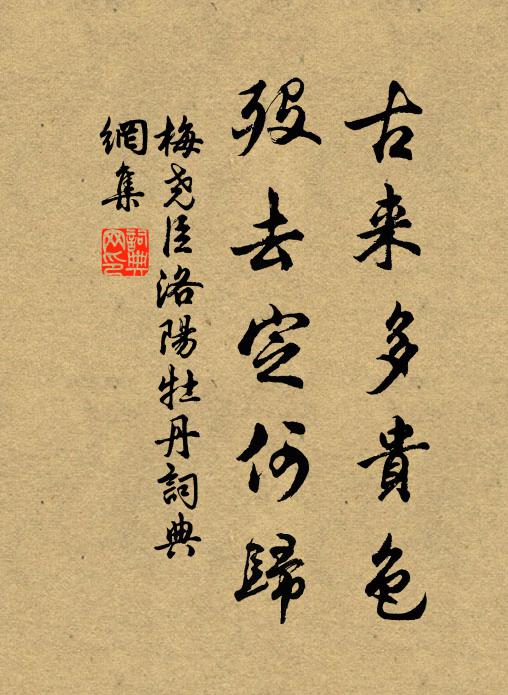 古来多貴色
歿去定何歸
梅尧臣洛陽牡丹詞典
網集
詞典網印